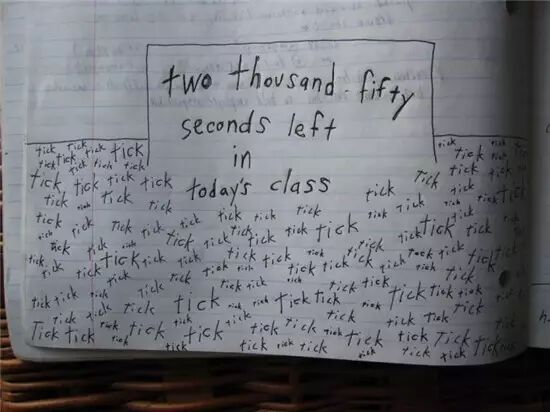 two thousand fifty
seconds left
in
today's class
tick tick tick tick tick tick tick
tick tick tick tick tick tick tick tick
tick tick tick tick tick tick tick tick
tick tick tick tick tick tick tick tick
tick tick tick tick tick tick tick tick tick
tick tick tick tick tick tick tick tick tick tick
tick tick tick tick tick tick tick tick tick tick
tick tick tick tick tick tick tick tick tick tick
tick tick tick tick tick tick tick tick tick tick
tick tick tick tick tick tick tick tick tick tick
tick tick tick tick tick tick tick tick tick tick
Tick tick tick tick tick tick tick tick tick Tick tick
tick tick tick tick tick tick tick tick